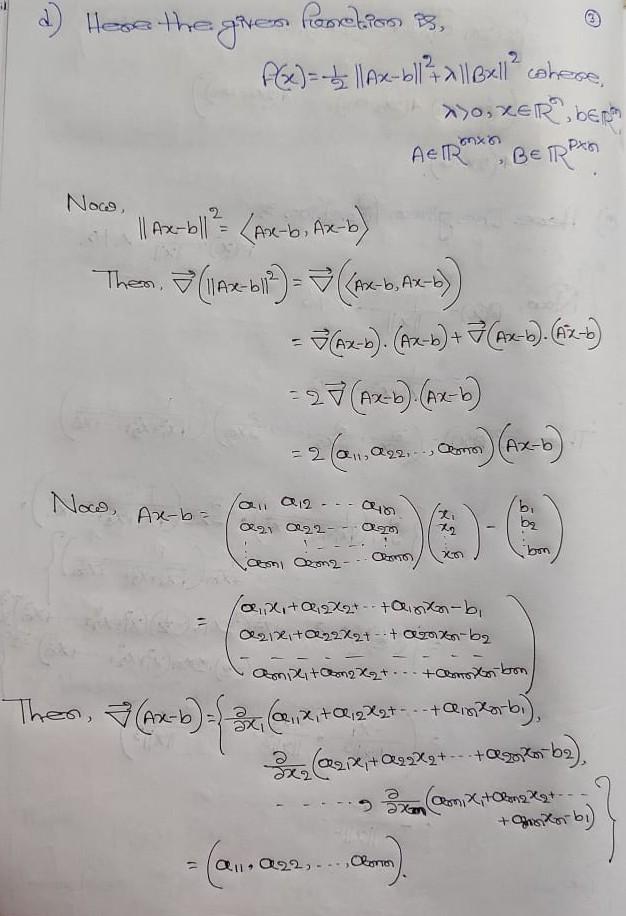 d) Here the given function is, ③
f(x) = 1/2 ||Ax-b||² + λ||Bx||² where,
λ>0, x∈ℝⁿ, b∈ℝᵐ,
A∈ℝᵐˣⁿ, B∈ℝᵖˣⁿ.
Now,
||Ax-b||² = ⟨Ax-b, Ax-b⟩
Then, ∇⃗(||Ax-b||²) = ∇⃗(⟨Ax-b, Ax-b⟩)
= ∇⃗(Ax-b).(Ax-b) + ∇⃗(Ax-b).(Ax-b)
= 2∇⃗(Ax-b).(Ax-b)
= 2(a₁₁, a₂₂, ..., aₘₙ)(Ax-b)
Now, Ax-b = (a₁₁ a₁₂ --- a₁ₙ
a₂₁ a₂₂ --- a₂ₙ
aₘ₁ aₘ₂ --- aₘₙ) (x₁ x₂ ⋮ xₙ) - (b₁ b₂ ⋮ bₘ)
= (a₁₁x₁+a₁₂x₂+...+a₁ₙxₙ-b₁
a₂₁x₁+a₂₂x₂+...+a₂ₙxₙ-b₂
- - - - - - - -
aₘ₁x₁+aₘ₂x₂+...+aₘₙxₙ-bₘ)
Then, ∇⃗(Ax-b) = {∂/∂x₁ (a₁₁x₁+a₁₂x₂+---+a₁ₙxₙ-b₁),
∂/∂x₂ (a₂₁x₁+a₂₂x₂+---+a₂ₙxₙ-b₂),
- - - - - -, ∂/∂xₙ (aₘ₁x₁+aₘ₂x₂+---
+aₘₙxₙ-b₁)}
= (a₁₁, a₂₂, ..., aₘₙ).